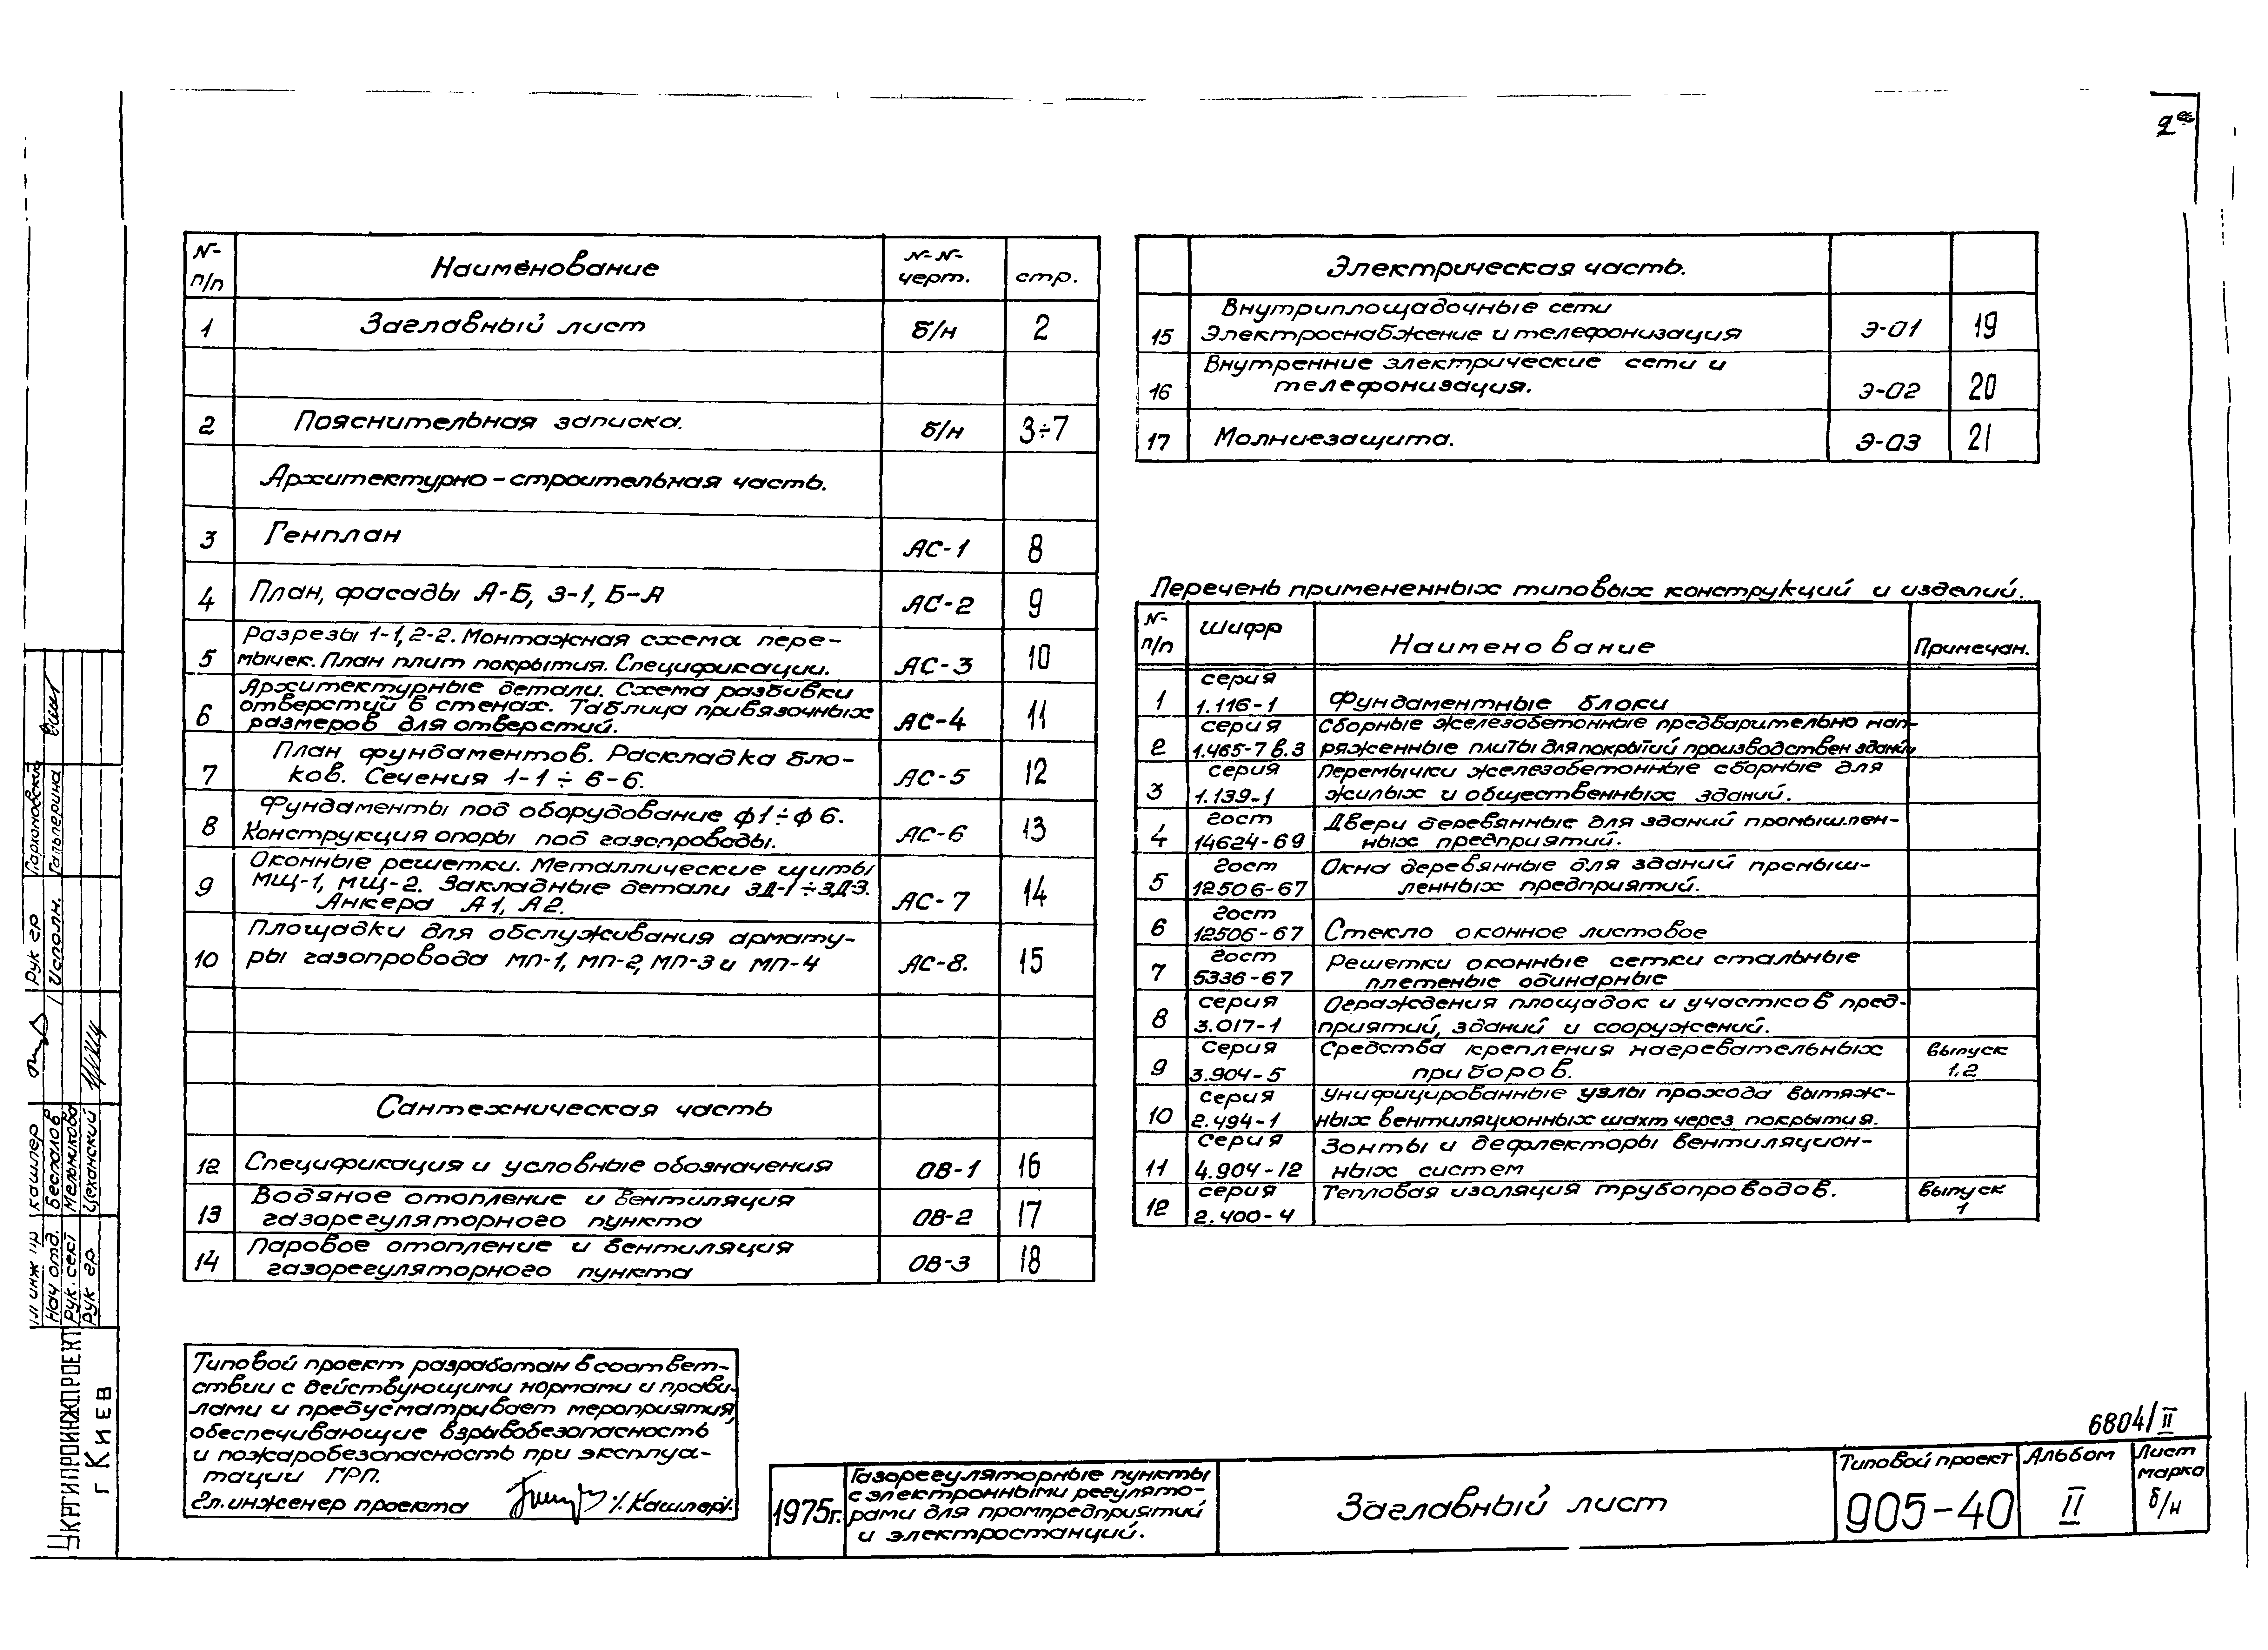 2
№ п/п Наименование №№ черт. стр.
1 Заглавный лист б/н 2
2 Пояснительная записка. б/н 3÷7
Архитектурно-строительная часть.
3 Генплан АС-1 8
4 План, фасады А-Б, 3-1, Б-А АС-2 9
5 Разрезы 1-1, 2-2. Монтажная схема пере-
мычек. План плит покрытия. Спецификации. АС-3 10
6 Архитектурные детали. Схема разбивки
отверстий в стенах. Таблица привязочных
размеров для отверстий. АС-4 11
7 План фундаментов. Раскладка бло-
ков. Сечения 1-1÷6-6. АС-5 12
8 Фундаменты под оборудование ф1÷ф6.
Конструкция опоры под газопроводы. АС-6 13
9 Оконные решетки. Металлические щиты
МЩ-1, МЩ-2. Закладные детали ЗД-1÷ЗД-3.
Анкера А1, А2. АС-7 14
10 Площадки для обслуживания армату-
ры газопровода МП-1, МП-2, МП-3 и МП-4 АС-8. 15
Сантехническая часть
12 Спецификация и условные обозначения ОВ-1 16
13 Водяное отопление и вентиляция
газорегуляторного пункта ОВ-2 17
14 Паровое отопление и вентиляция
газорегуляторного пункта ОВ-3 18
Электрическая часть.
15 Внутриплощадочные сети
Электроснабжение и телефонизация Э-01 19
16 Внутренние электрические сети и
телефонизация. Э-02 20
17 Молниезащита. Э-03 21
Перечень примененных типовых конструкций и изделий.
№ п/п Шифр Наименование Примечан.
1 серия
1.116-1 Фундаментные блоки
2 серия Сборные железобетонные предварительно нап-
1.465-7 в.3 ряженные плиты для покрытий производствен зданий
3 серия Перемычки железобетонные сборные для
1.139-1 жилых и общественных зданий.
4 гост Двери деревянные для зданий промышлен-
14624-69 ных предприятий.
5 гост Окна деревянные для зданий промыш-
12506-67 ленных предприятий.
6 гост
12506-67 Стекло оконное листовое
7 гост Решетки оконные сетки стальные
5336-67 плетеные одинарные
8 серия Ограждения площадок и участков пред-
3.017-1 приятий, зданий и сооружений.
9 серия Средства крепления нагревательных выпуск
3.904-5 приборов. 1.2
10 серия Унифицированные узлы прохода вытяж-
2.494-1 ных вентиляционных шахт через покрытия.
11 серия Зонты и дефлекторы вентиляцион-
4.904-12 ных систем
12 серия Тепловая изоляция трубопроводов. выпуск
2.400-4 1
Типовой проект разработан в соответ-
ствии с действующими нормами и прави-
лами и предусматривает мероприятия,
обеспечивающие взрывобезопасность
и пожаробезопасность при эксплуа-
тации ГРП.
Гл. инженер проекта /Кашпер/.
6804/II
1975г.
Газорегуляторные пункты
с электронными регулято-
рами для промпредприятий
и электростанций.
Заглавный лист
Типовой проект
905-40
Альбом
II
Лист
марка
б/н
Укргипроинжпроект
г Киев
Гл инж пр Кашпер
Нач отд. Беспалов
Рук. сект Мельникова
Рук гр Цеханский
Рук гр Пархомовский
Исполн. Гальперина